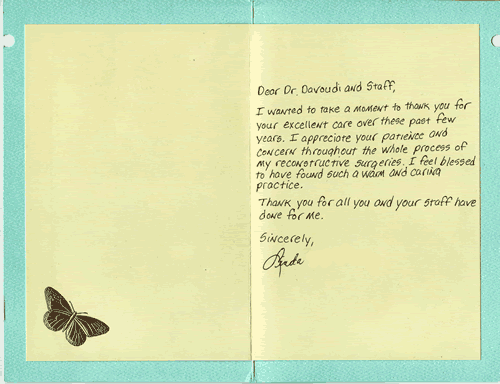 Dear Dr. Davoudi and Staff,
I wanted to take a moment to thank you for
your excellent care over these past few
years. I appreciate your patience and
concern throughout the whole process of
my reconstructive surgeries. I feel blessed
to have found such a warm and caring
practice.
Thank you for all you and your staff have
done for me.
Sincerely,
Linda